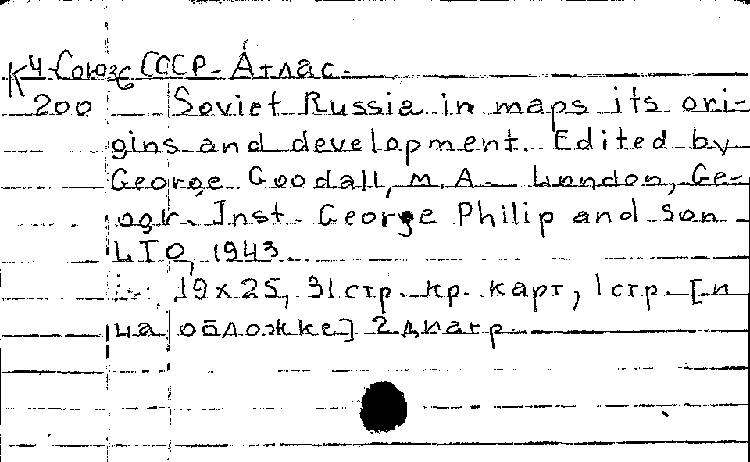 К4-Союзс СССР-Атлас.
200 Soviet Russia in maps its ori-
gins and development. Edited by
George Goodall, M.A. London, Ge-
ogr. Inst. George Philip and son
LTD, 1943.
19x25, 31 стр. кр. карт, 1 стр. [п
на обложке] 2 диагр.